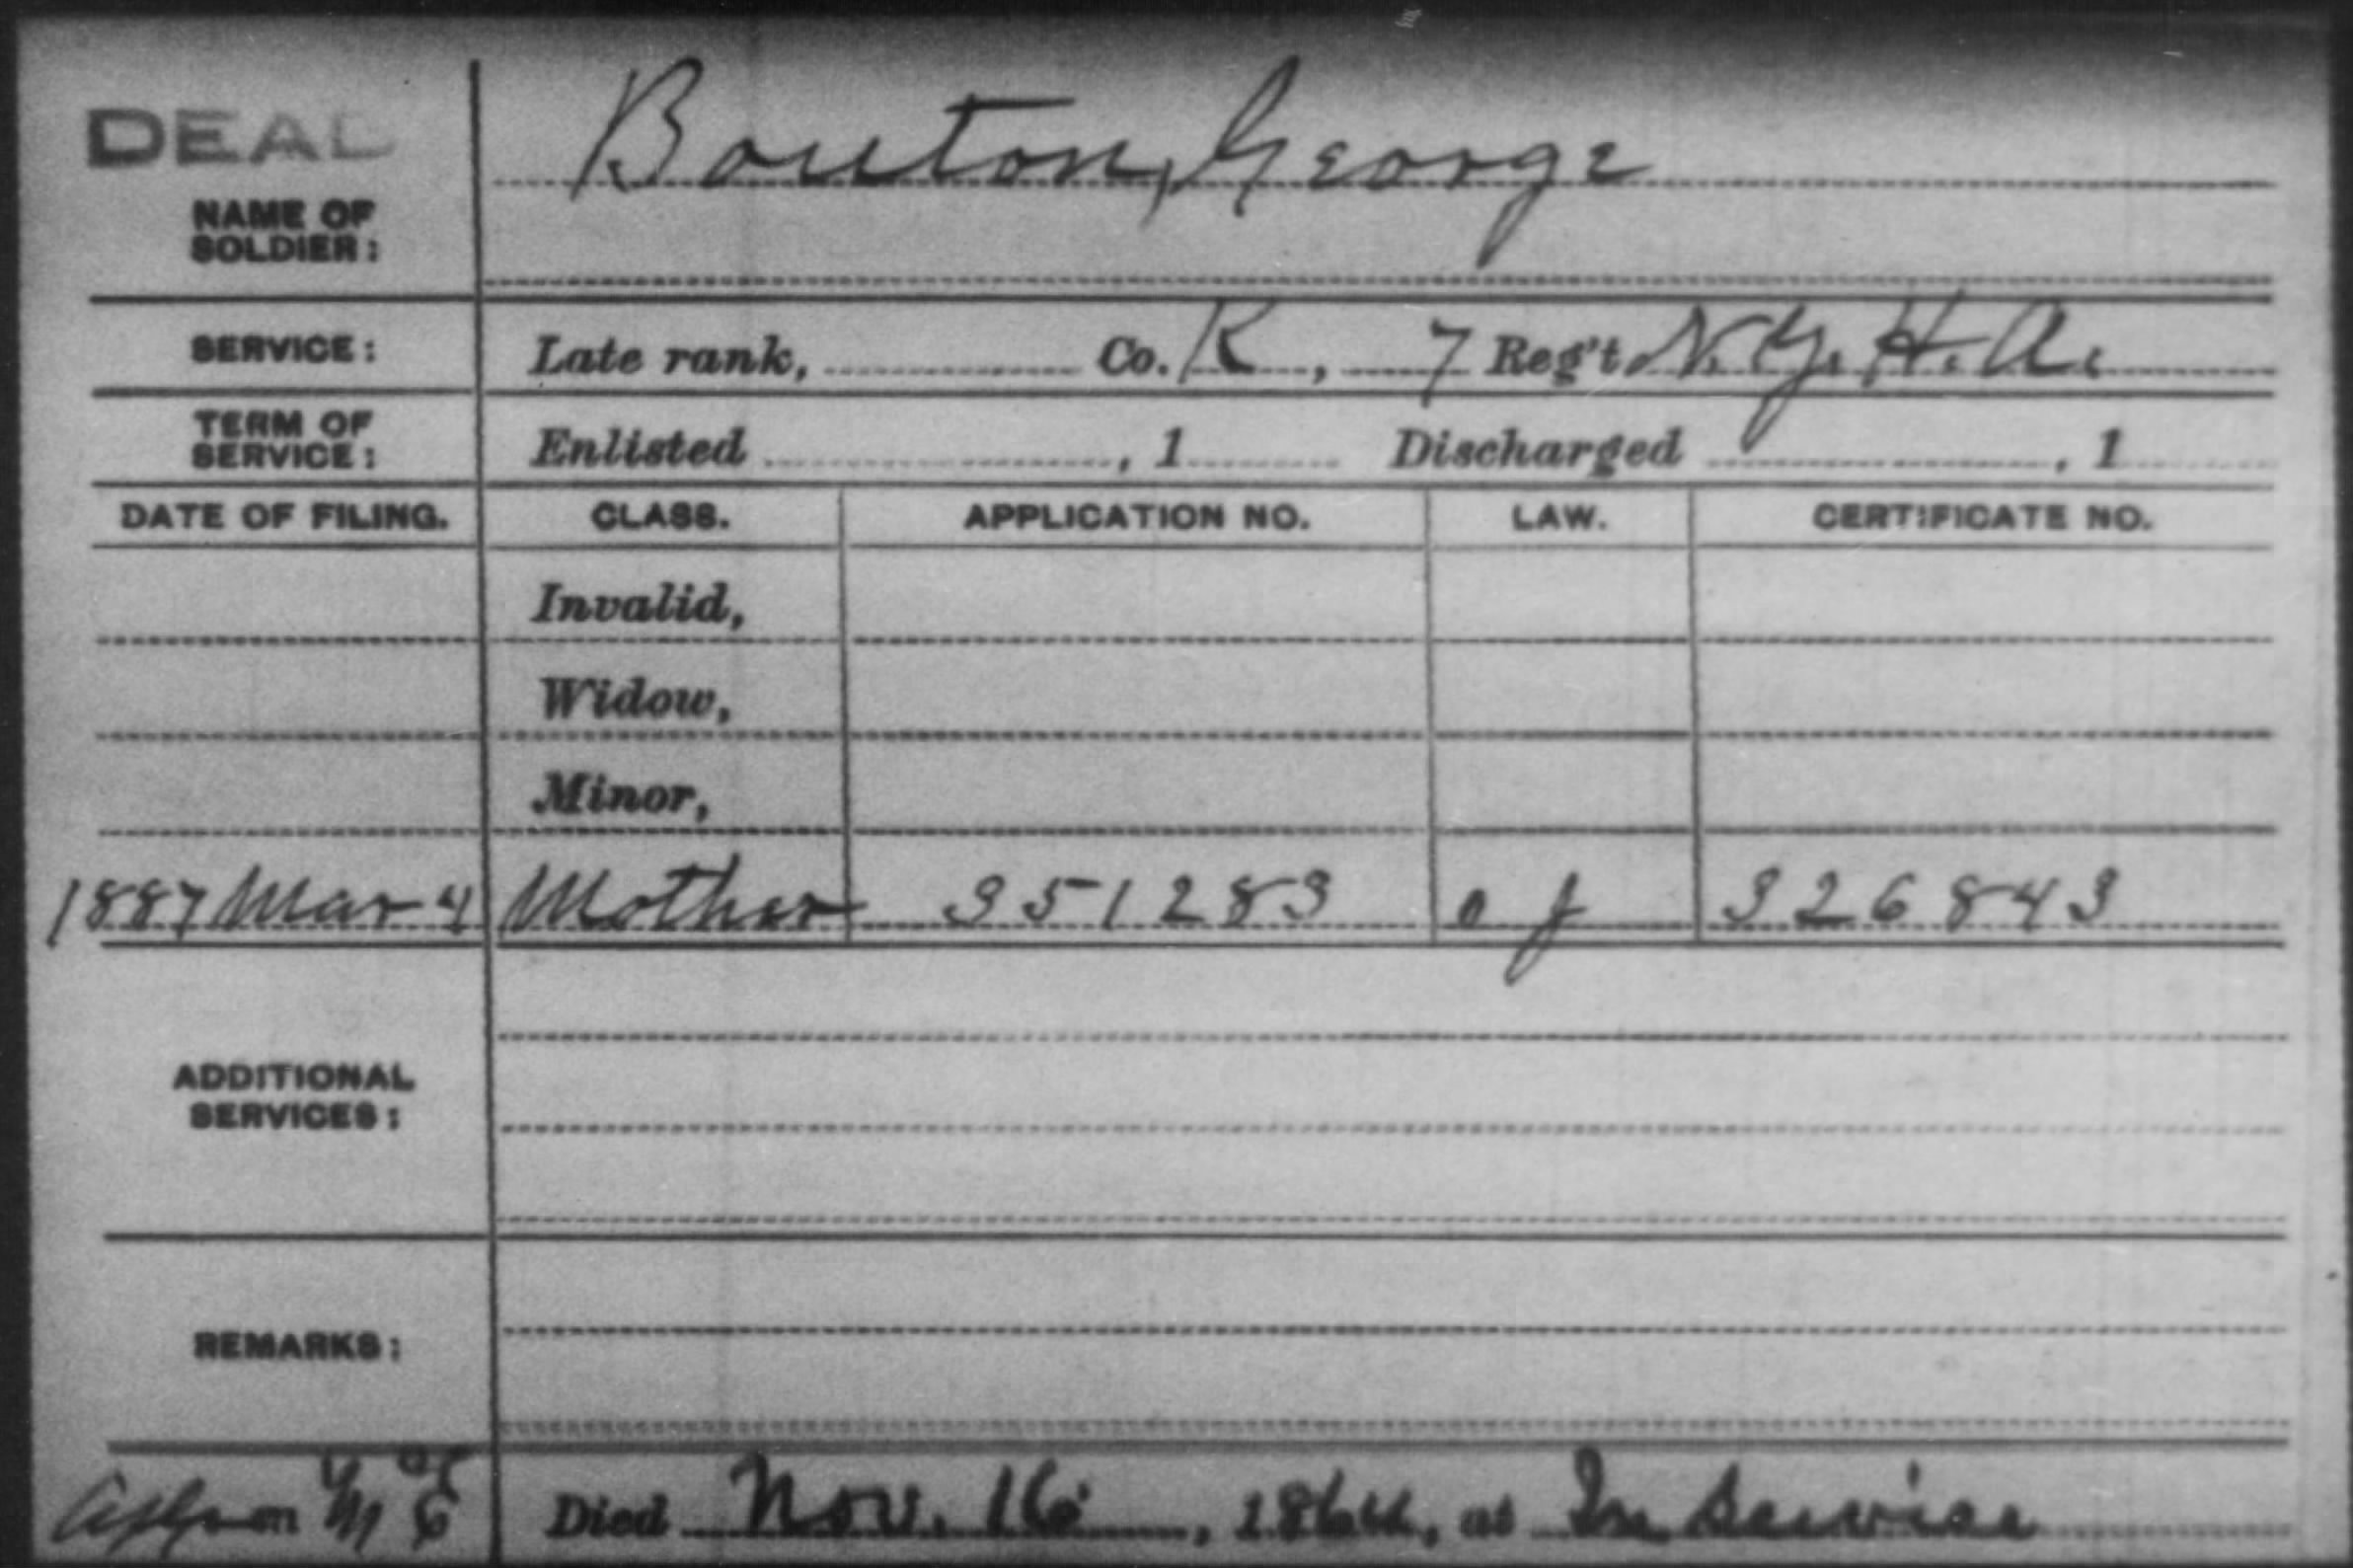 DEAD
Bouton, George
NAME OF
SOLDIER:
SERVICE: Late rank, Co. K, 7 Reg't N.Y. H. A.
TERM OF
SERVICE: Enlisted , 1 Discharged , 1
DATE OF FILING. CLASS. APPLICATION NO. LAW. CERTIFICATE NO.
Invalid,
Widow,
Minor,
1887 Mar 4 Mother 351283 of 326843
ADDITIONAL
SERVICES:
REMARKS:
Died Nov. 16, 1864, at In Service